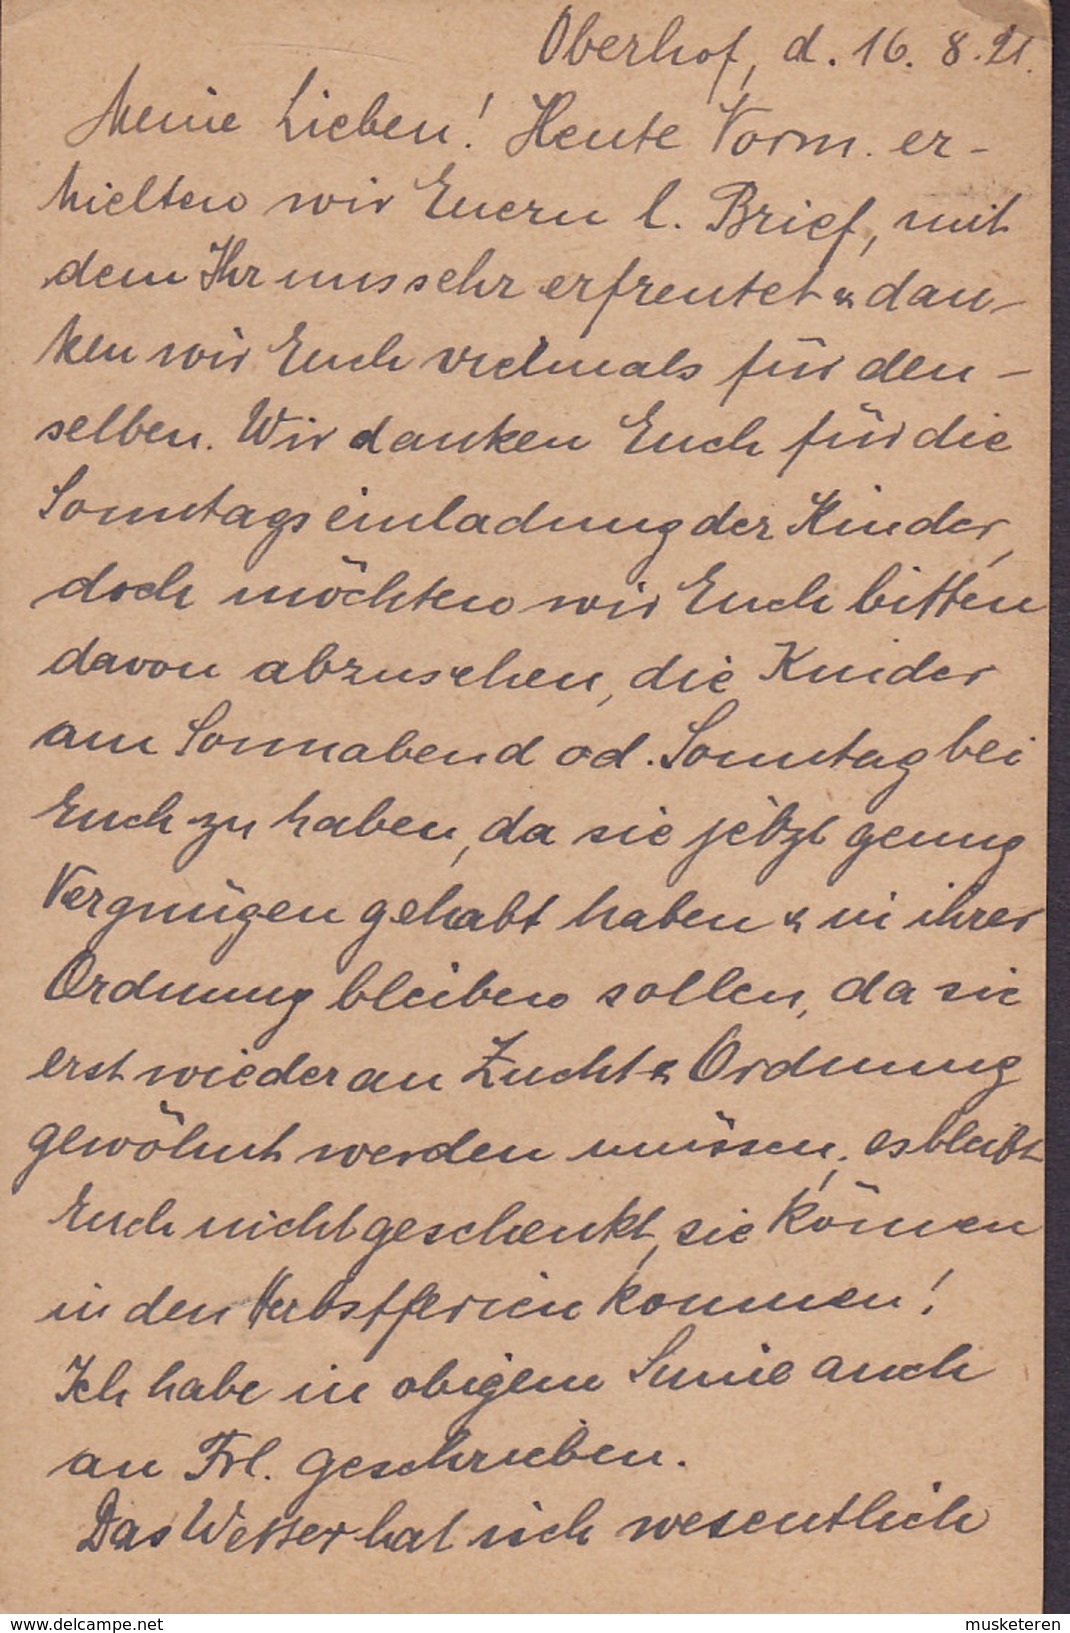 Oberhof, d. 16. 8. 21.
Meine Lieben! Heute Vorm. er-
hielten wir Euern l. Brief, mit
dem Ihr uns sehr erfreutet & dan-
ken wir Euch vielmals für den-
selben. Wir danken Euch für die
Sonntagseinladung der Kinder,
doch möchten wir Euch bitten
davon abzusehen, die Kinder
am Sonnabend od. Sonntag bei
Euch zu haben, da sie jetzt genug
Vergnügen gehabt haben & in ihrer
Ordnung bleiben sollen, da sie
erst wieder an Zucht & Ordnung
gewöhnt werden müssen, es bleibt
Euch nicht geschenkt, sie können
in den Herbstferien kommen!
Ich habe in obigem Sinne auch
an Frl. geschrieben.
Das Wetter hat sich wesentlich
www.delcampe.net
musketeren